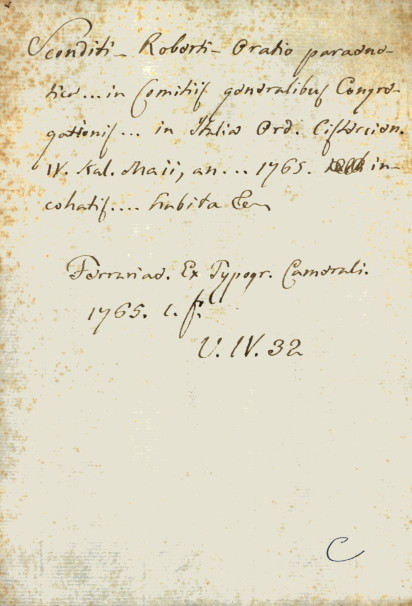 Sconditi - Roberti - Oratio paraene-
tica ... in Comitiis generalibus Congre-
gationis ... in Italia Ord. Cistercien.
IV. Kal. Maii, an ... 1765. in-
cohatis .... habita &c
Ferrariae. Ex Typogr. Camerali.
1765. c. f.
V. IV. 32
C